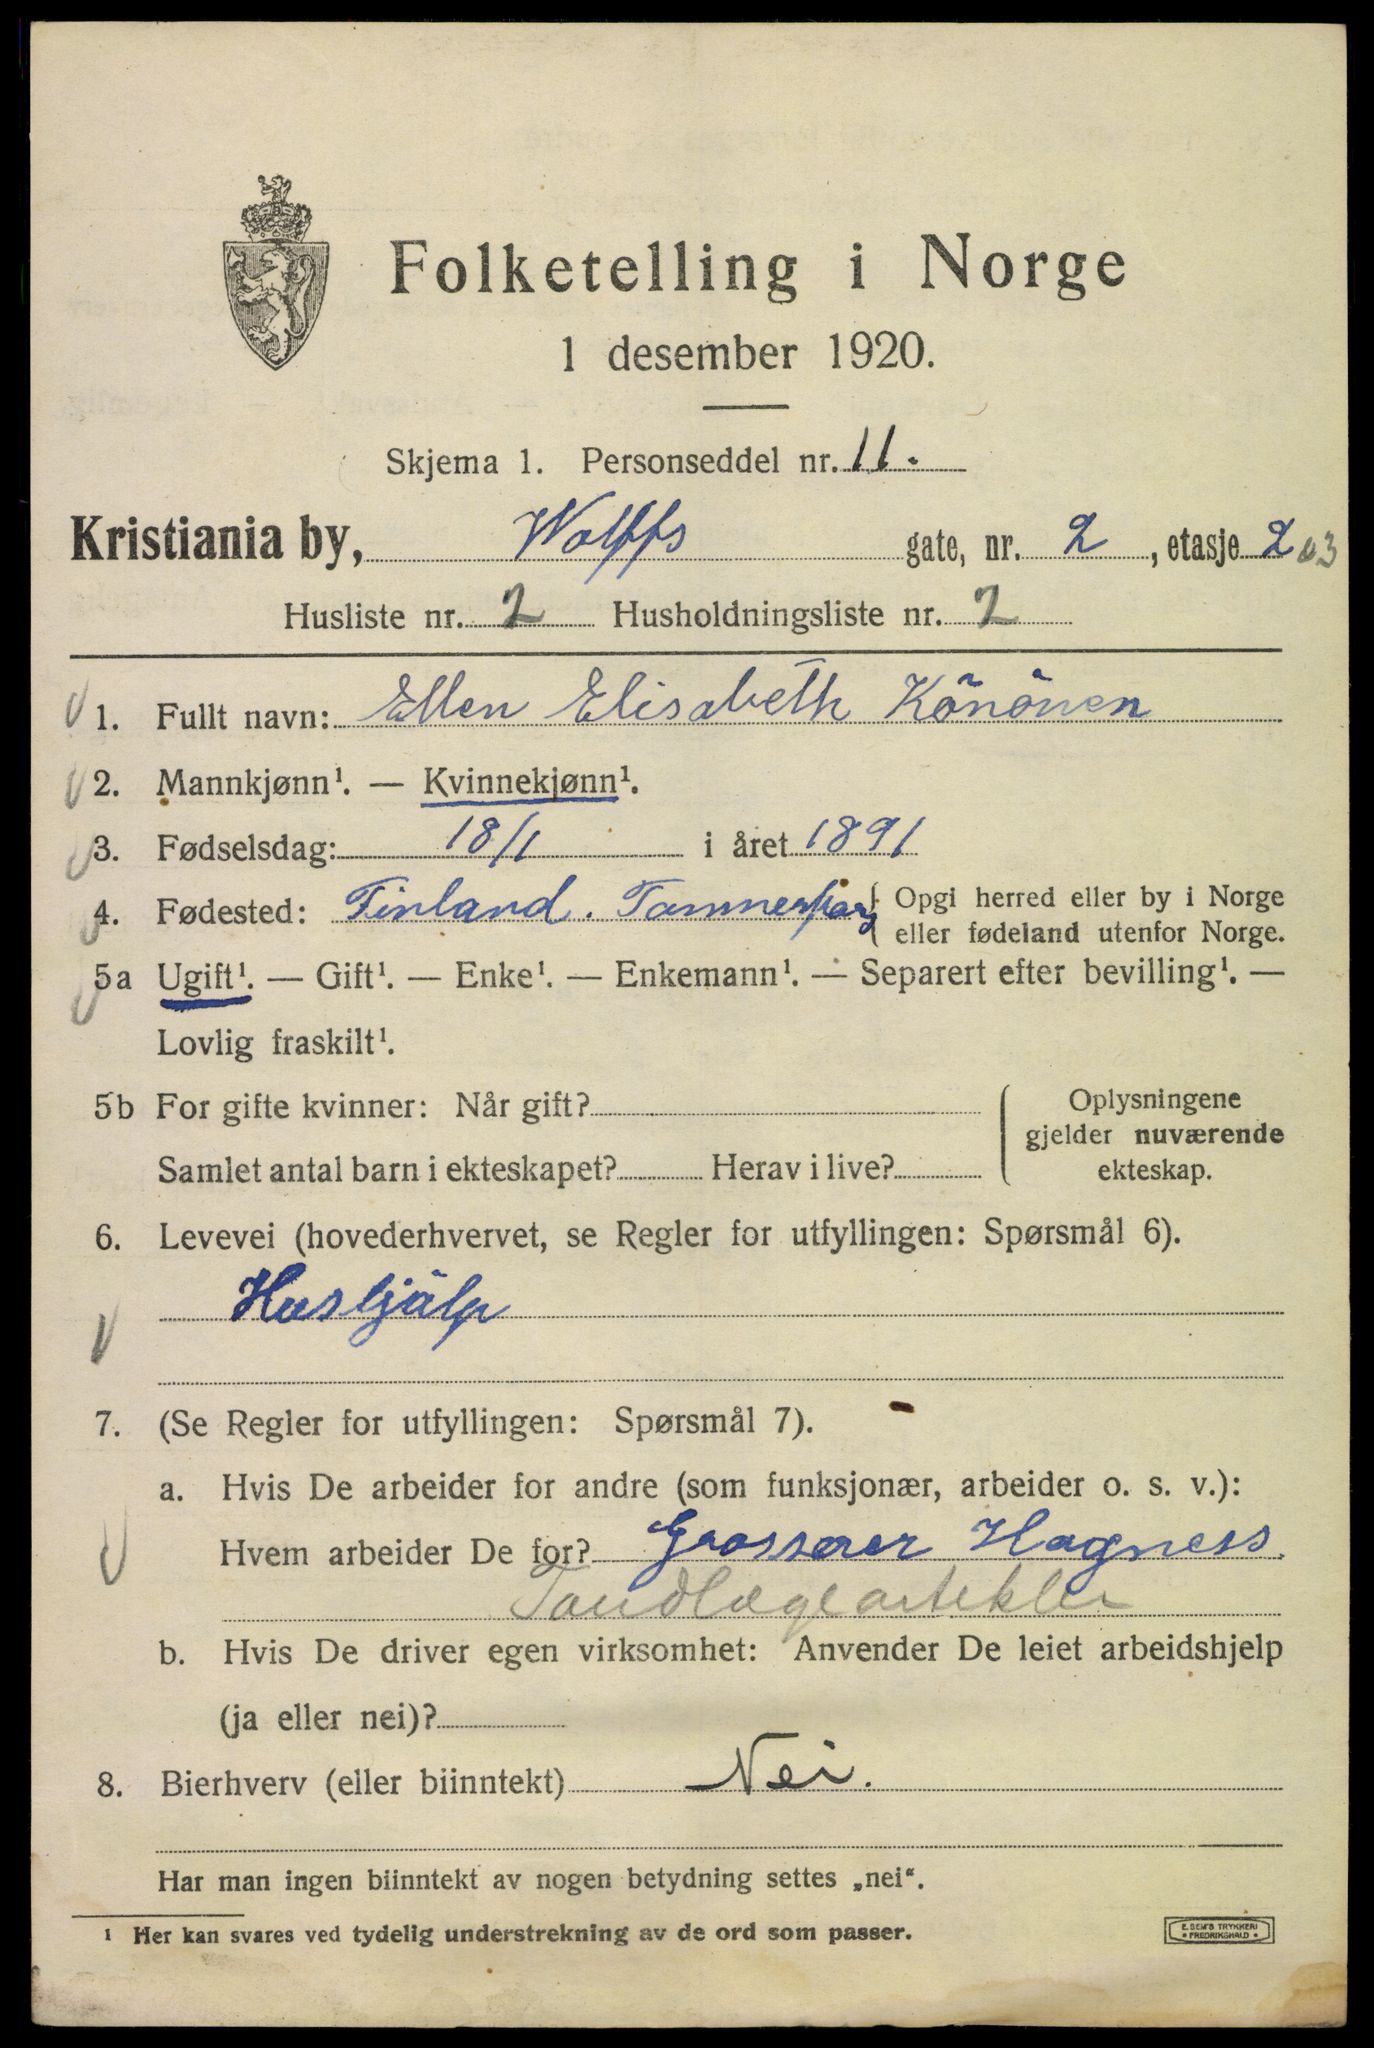 Folketelling i Norge
1 desember 1920.
Skjema 1. Personseddel nr. 11.
Kristiania by, Wolffs gate, nr. 2, etasje 2 o 3
Husliste nr. 2 Husholdningsliste nr. 2
1. Fullt navn: Ellen Elisabeth Könönen
2. Mannkjønn¹. — Kvinnekjønn¹.
3. Fødselsdag: 18/1 i året 1891
4. Fødested: Finland. Tammerfors { Opgi herred eller by i Norge
eller fødeland utenfor Norge.
5a Ugift¹. — Gift¹. — Enke¹. — Enkemann¹. — Separert efter bevilling¹. —
Lovlig fraskilt¹.
5b For gifte kvinner: Når gift?
Samlet antal barn i ekteskapet? Herav i live?
Oplysningene
gjelder nuværende
ekteskap.
6. Levevei (hovederhvervet, se Regler for utfyllingen: Spørsmål 6).
Hushjälp
7. (Se Regler for utfyllingen: Spørsmål 7).
a. Hvis De arbeider for andre (som funksjonær, arbeider o. s. v.):
Hvem arbeider De for? Grosserer Hagness.
Tandlægeartekler
b. Hvis De driver egen virksomhet: Anvender De leiet arbeidshjelp
(ja eller nei)?
8. Bierhverv (eller biinntekt) Nei.
Har man ingen biinntekt av nogen betydning settes „nei“.
¹ Her kan svares ved tydelig understrekning av de ord som passer.
E. SEM'S TRYKKERI
• FREDRIKSHALD •